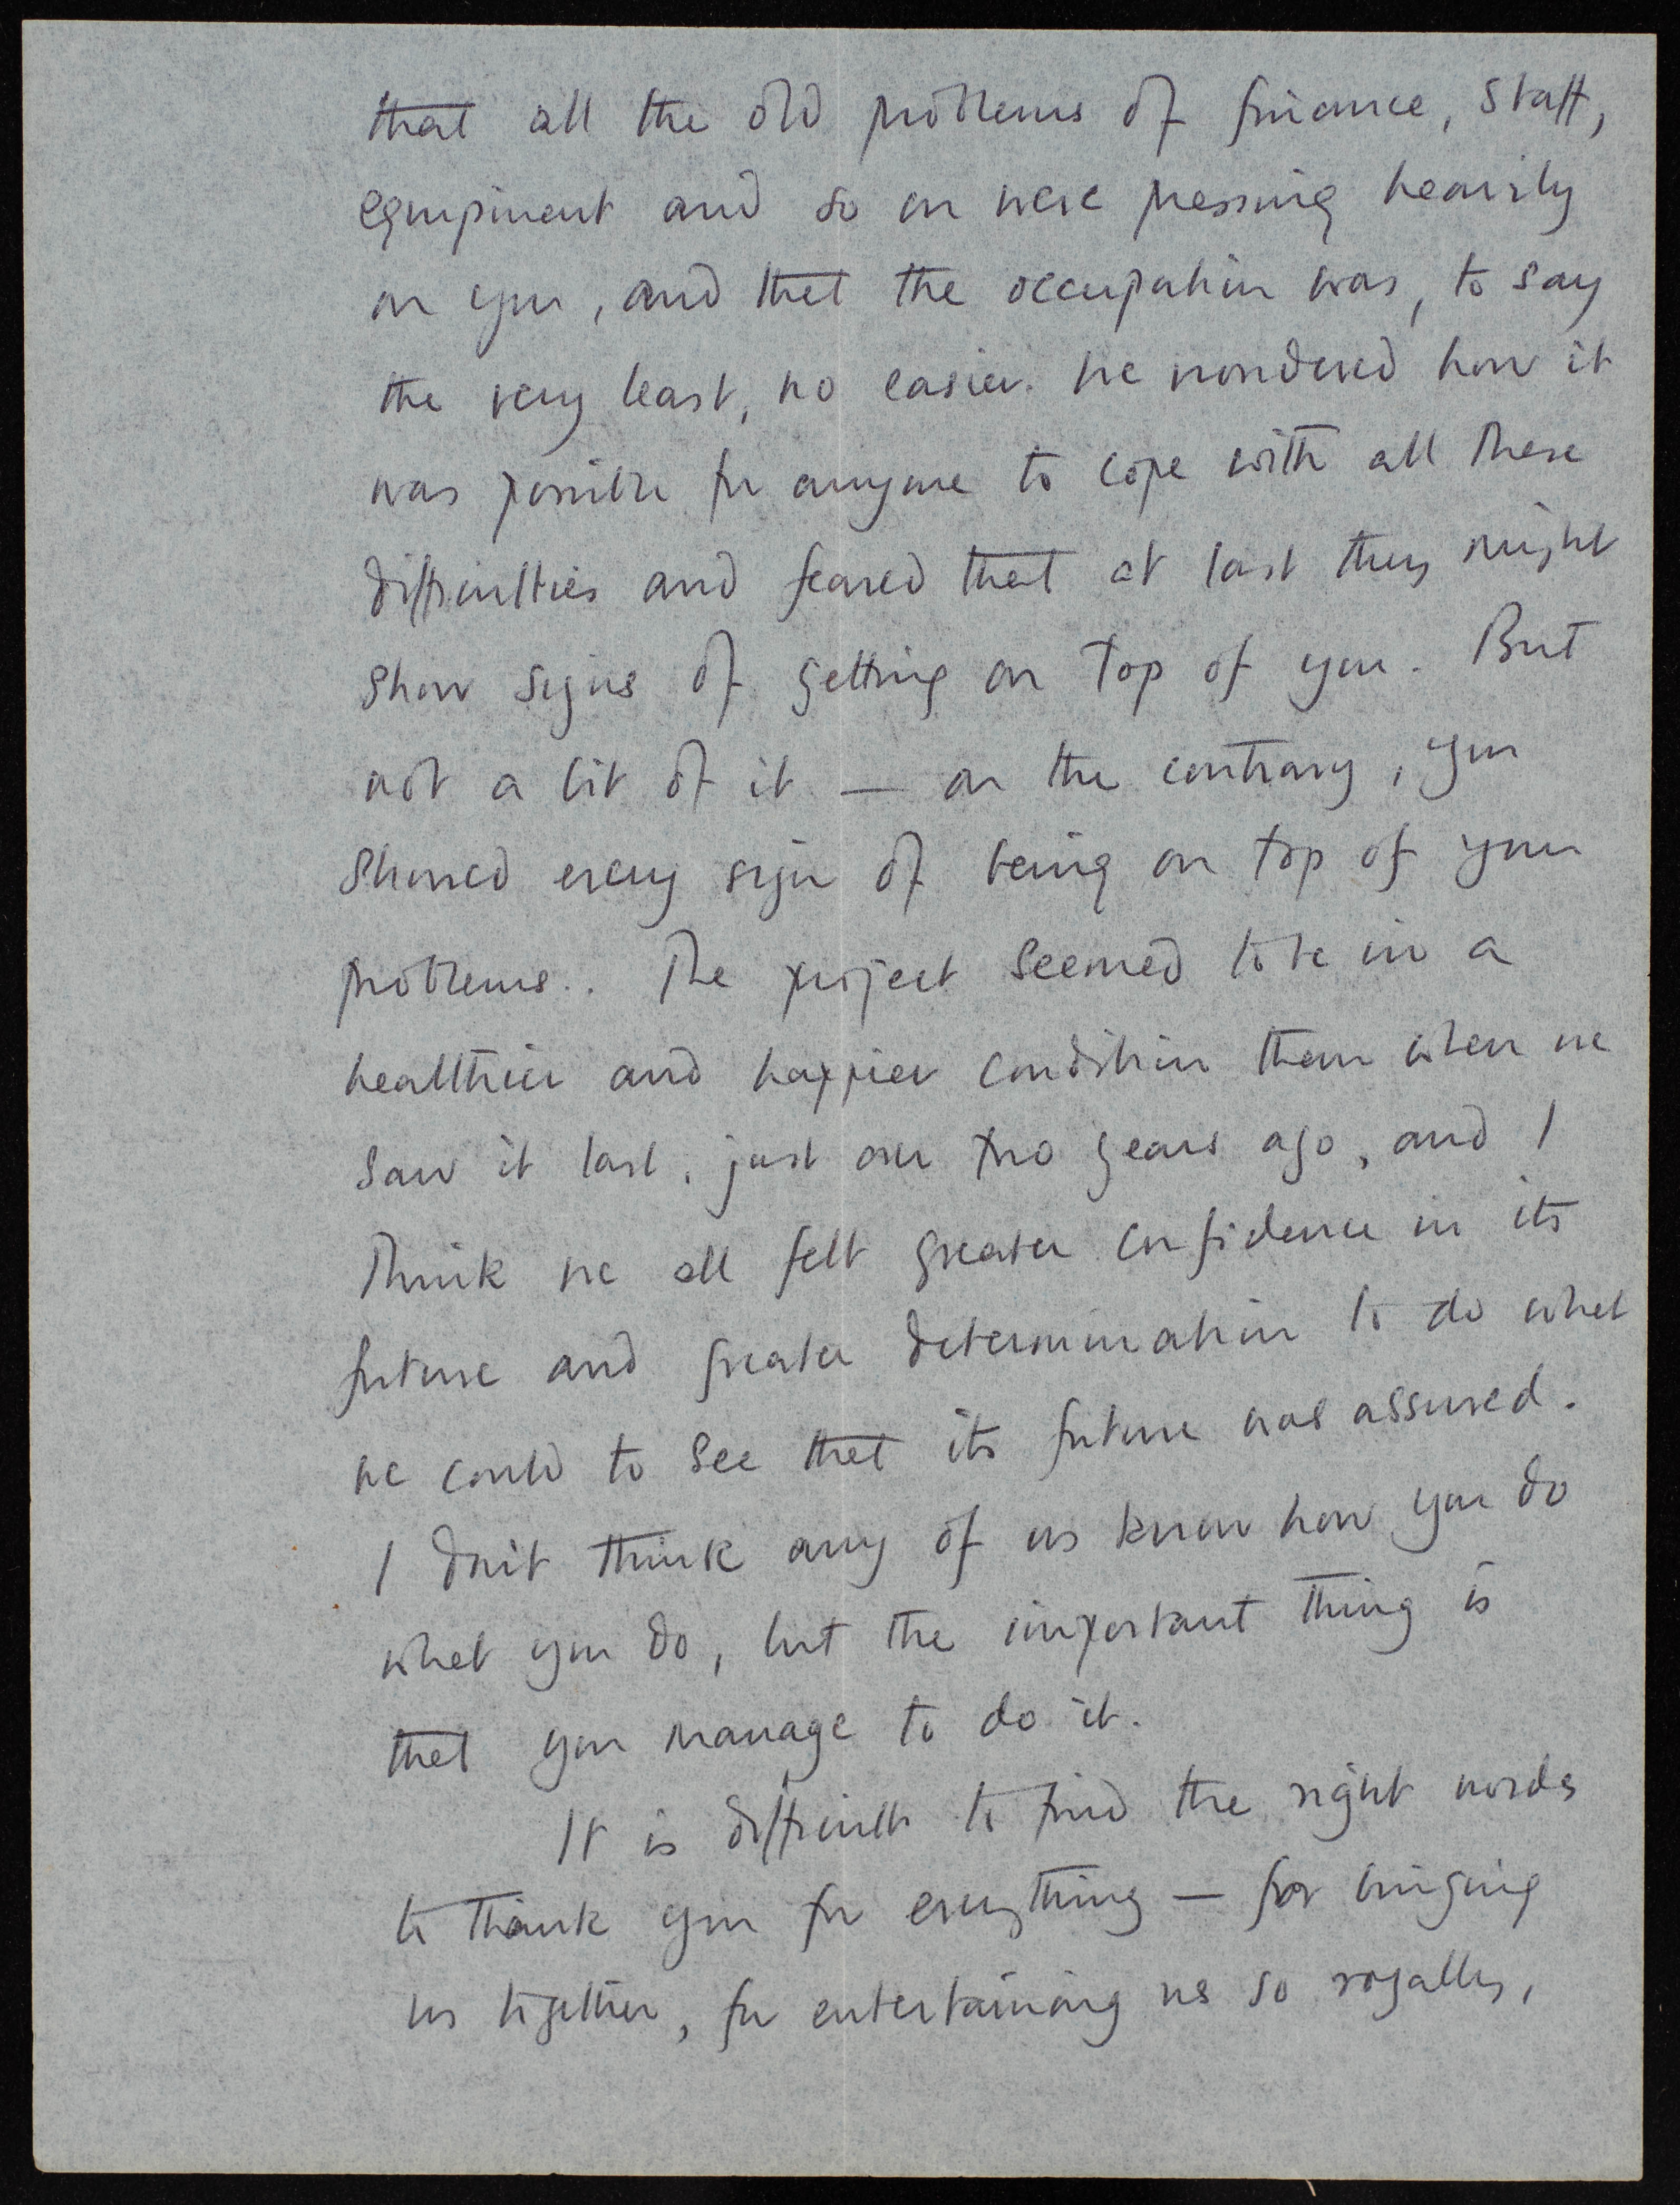 that all the old problems of finance, staff,
equipment and so on were pressing heavily
on you, and that the occupation was, to say
the very least, no easier. We wondered how it
was possible for anyone to cope with all these
difficulties and feared that at last they might
show signs of getting on top of you. But
not a bit of it — on the contrary, you
showed every sign of being on top of your
problems.. The project seemed to be in a
healthier and happier condition than when we
saw it last, just over two years ago, and I
think we all felt greater confidence in its
future and greater determination to do what
we could to see that its future was assured.
I don't think any of us know how you do
what you do, but the important thing is
that you manage to do it.
It is difficult to find the right words
to thank you for everything — for bringing
us together, for entertaining us so royally,